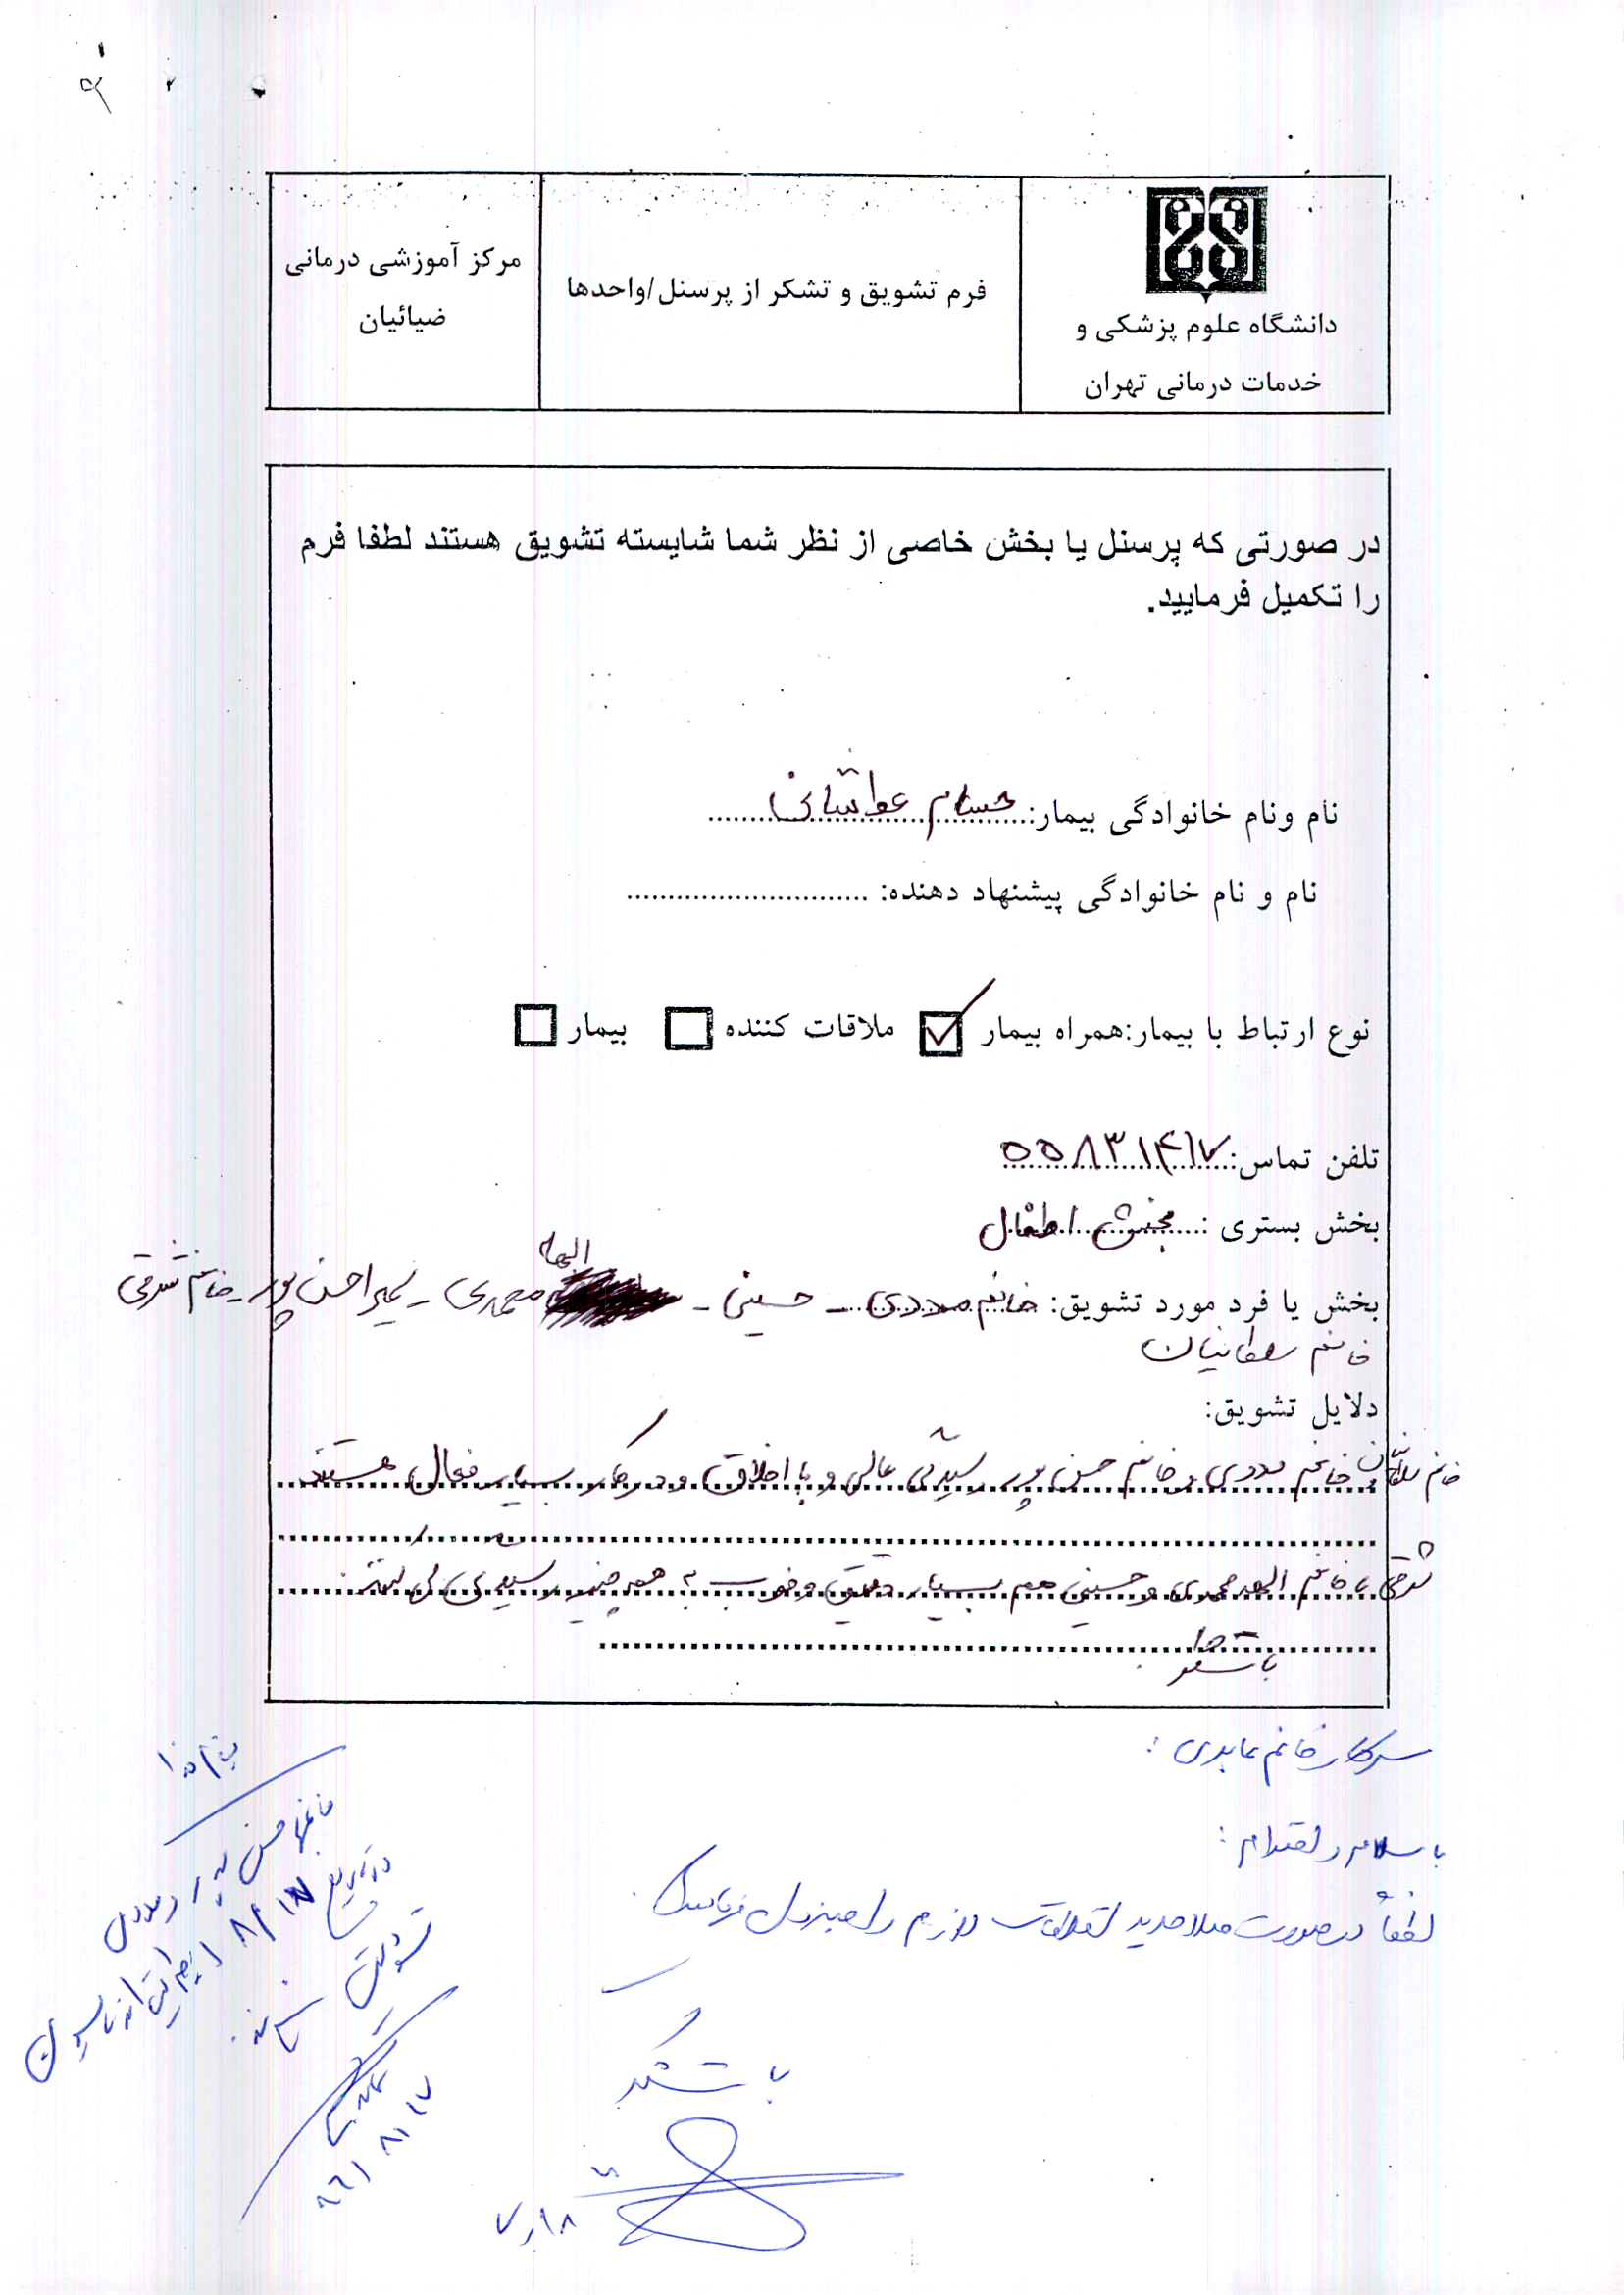 دانشگاه علوم پزشکی و
خدمات درمانی تهران
فرم تشویق و تشکر از پرسنل/واحدها
مرکز آموزشی درمانی
ضیائیان
در صورتی که پرسنل یا بخش خاصی از نظر شما شایسته تشویق هستند لطفا فرم
را تکمیل فرمایید.
نام ونام خانوادگی بیمار: حسام
نام و نام خانوادگی پیشنهاد دهنده:
نوع ارتباط با بیمار:همراه بیمار ☑ ملاقات کننده ☐ بیمار ☐
تلفن تماس: ۵۵۸۳۱۴۱۷
بخش بستری : بخش اطفال
بخش یا فرد مورد تشویق: خانم مددی - حسینی - الهه محمدی - حسن پور - خانم شرقی
خانم سلطانیان
دلایل تشویق:
خانم سلطانیان خانم مددی و خانم حسن پور رسیدگی عالی و با اخلاق و در کار بسیار فعال هستند
شرقی خانم الهه محمدی و حسینی هم بسیار دقیق و خوب به همه چیز رسیدگی می کنند
با تشکر
سرکار خانم عابدی :
با سلام و احترام :
لطفاً در صورت صلاحدید اقدامات لازم را مبذول فرمائید.
با تشکر
بنام خدا
خانمها حسن پور و مددی
در تاریخ ۸/۱۷
تشویق شدند.
۸۶/۸/۱۷